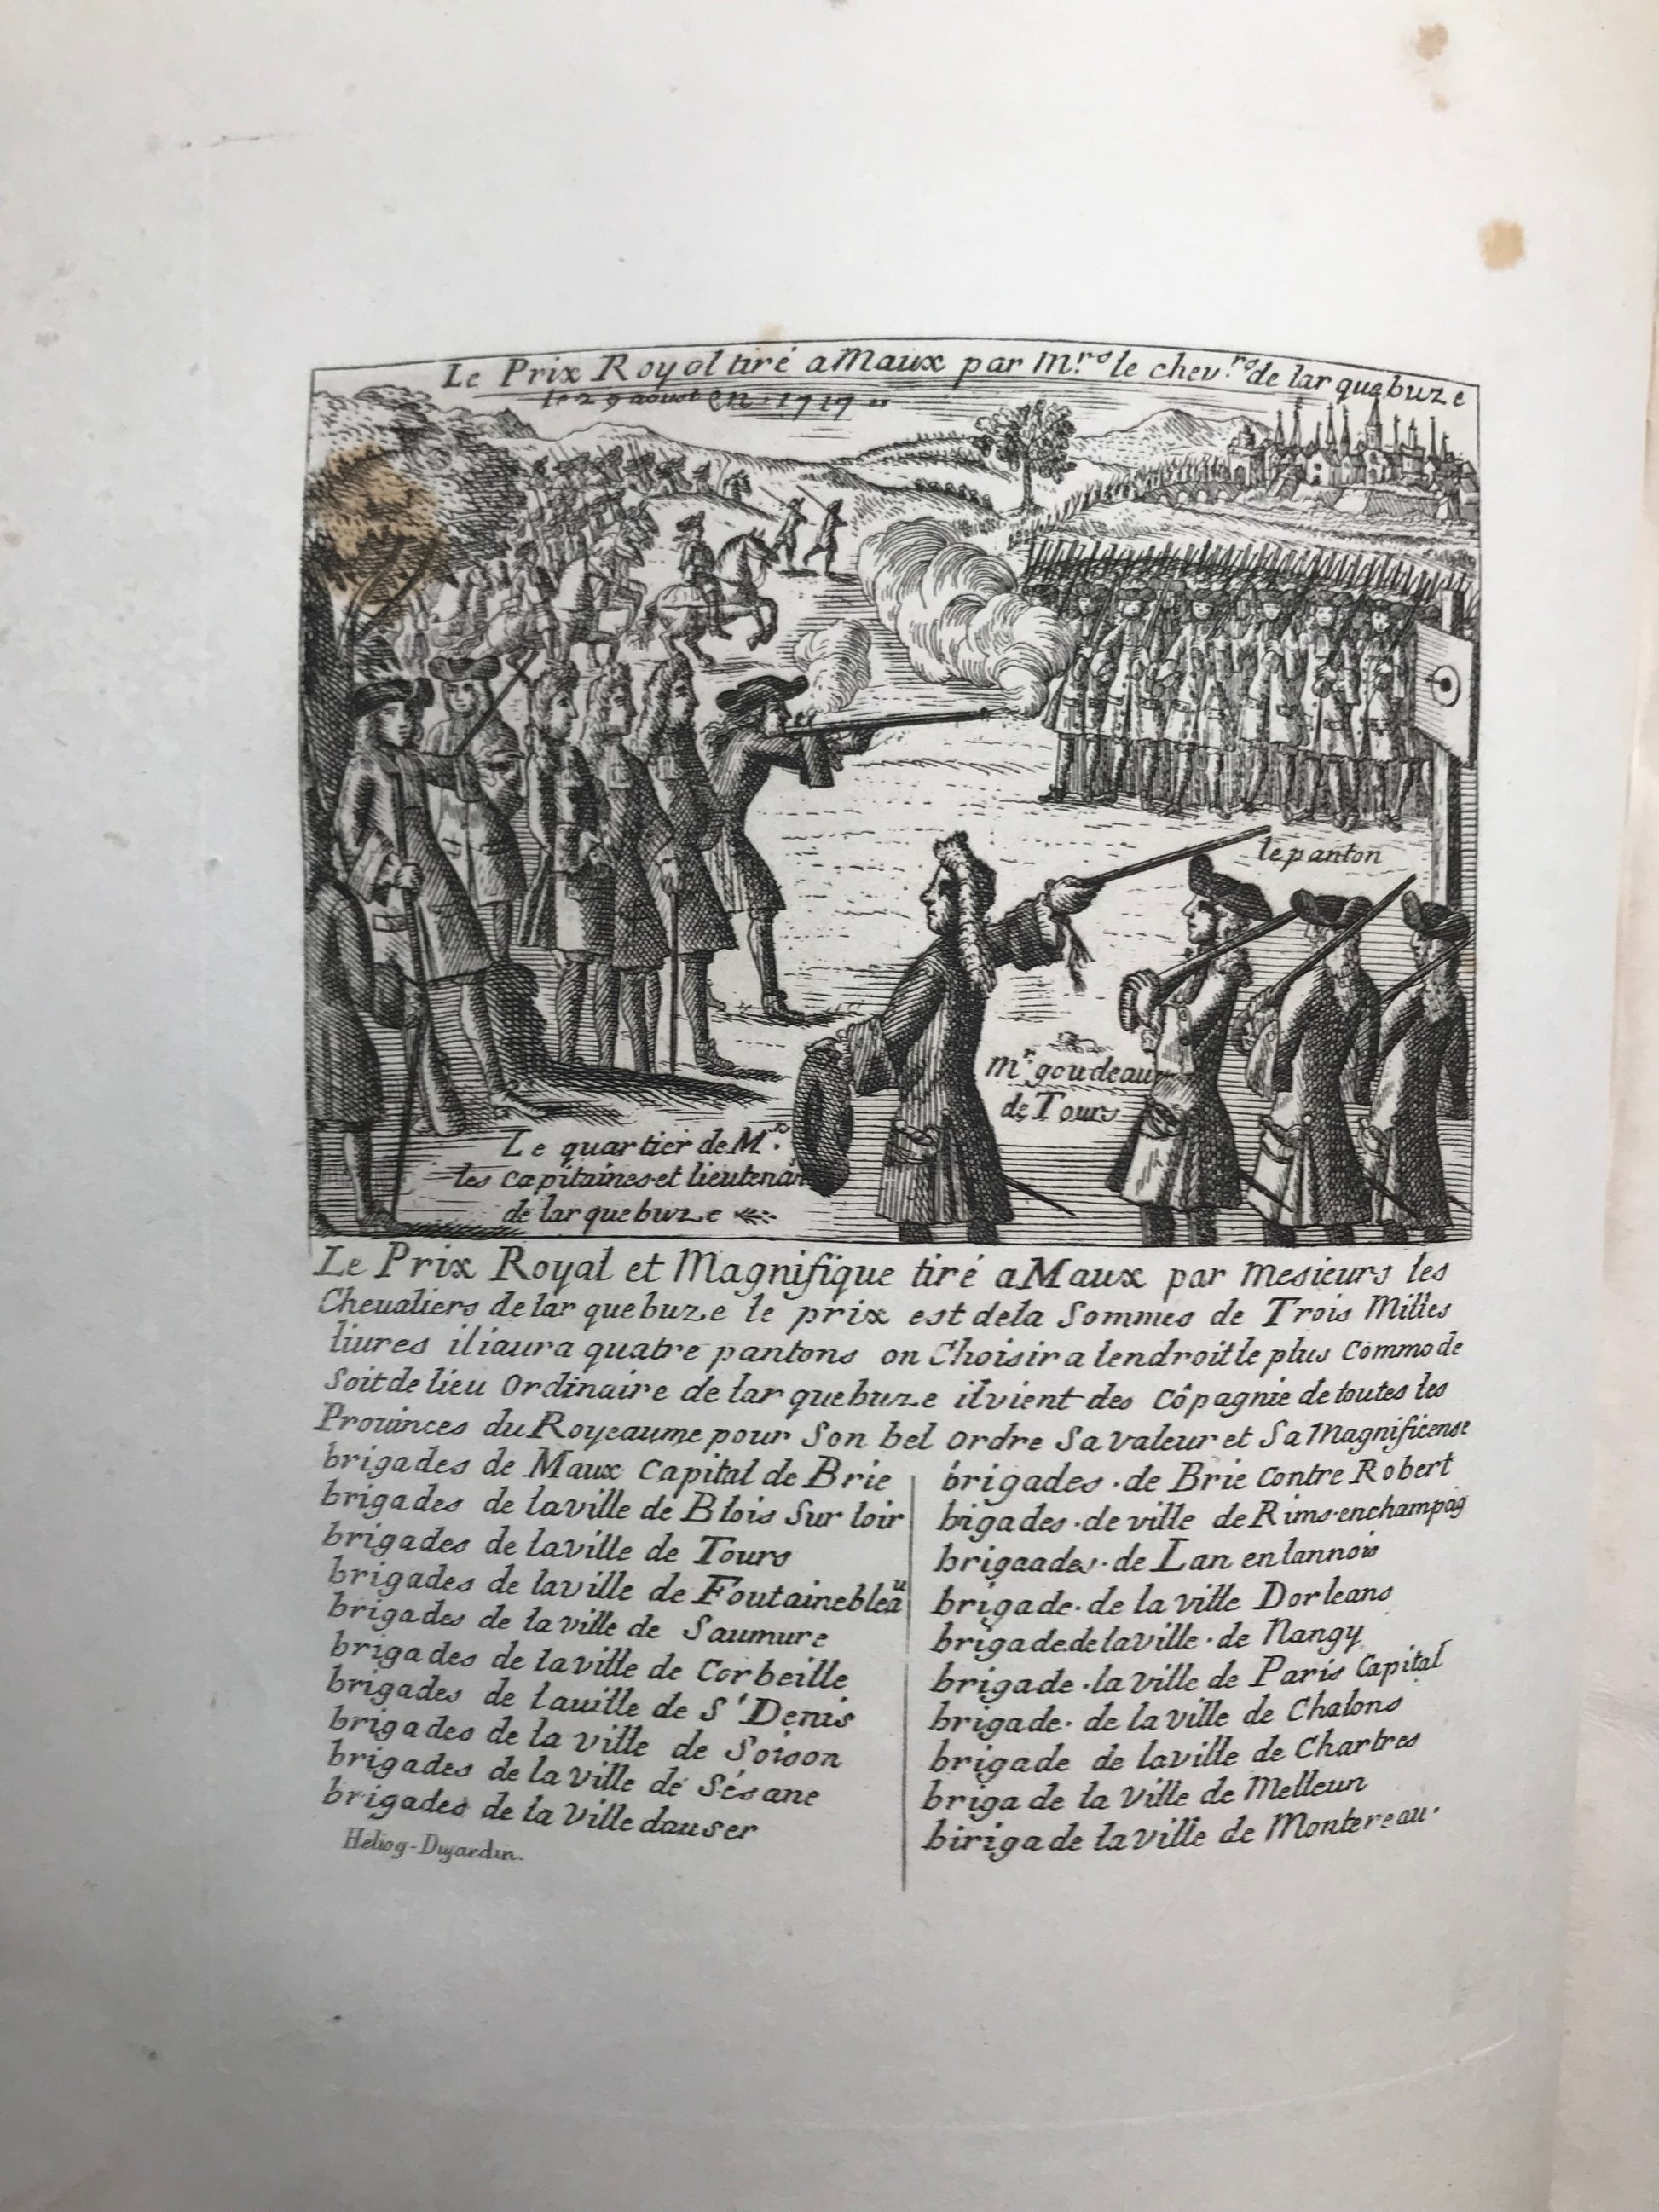 Le Prix Royal tiré a Maux par Mrs le chevrs de larquebuze
le 29 aoust en 1717
le panton
mr goudeau
de Tours
Le quartier de Mrs
les capitaines et lieutenan
de larquebuze
Le Prix Royal et Magnifique tiré a Maux par Mesieurs les
Cheualiers de lar quebuze le prix est dela Sommes de Trois Milles
liures iliaura quatre pantons on Choisira lendroit le plus Commode
Soit de lieu Ordinaire de lar quebuze il vient des Côpagnie de toutes les
Prouinces du Royeaume pour Son bel Ordre Sa Valeur et Sa Magnificense
brigades de Maux Capital de Brie
brigades de laville de Blois Sur loir
brigades de laville de Tours
brigades de laville de Foutainebleau
brigades de la ville de Saumure
brigades de laville de Corbeille
brigades de lauille de St Denis
brigades de la ville de Soison
brigades de la Ville de Sésane
brigades de la Ville dauser
brigades de Brie Contre Robert
bigades de ville de Rims enchampag
brigaades de Lan enlannois
brigade de la ville Dorleans
brigade de laville de Nangy
brigade la ville de Paris Capital
brigade de la ville de Chalons
brigade de laville de Chartres
briga de la Ville de Melleun
biriga de laville de Montereau
Héliog-Dujardin.